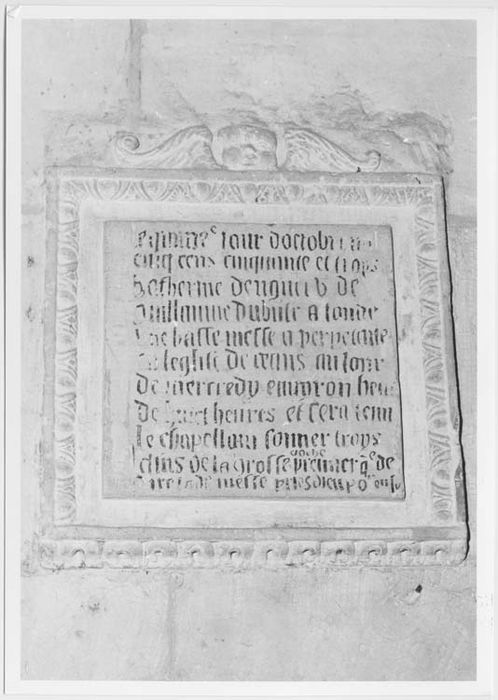 jour doctobre mil
cinq cens cinquante et troys
katherine de
guillaume dubule a fonde
une basse messe a perpetuite
leglise de ceans au jour
de mercredy environ heure
de heures et sera tenu
le chapellain sonner troys
de la grosse cloche premier q̃ de
dire lade messe pries dieu po᷑ eulx